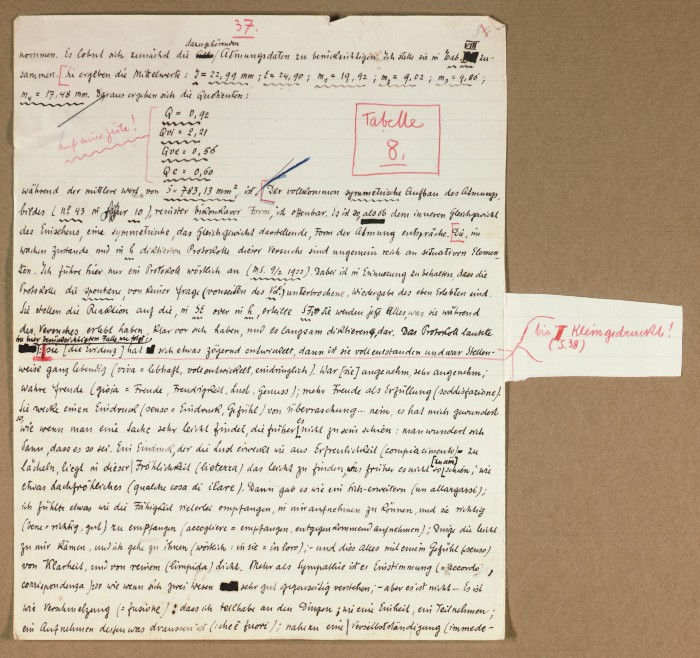 37.
dazugehörenden
nommen. Es lohnt sich zunächst die Atmungsdaten zu berücksichtigen. Ich stelle sie in Tab. VIII zu-
sammen. Es ergeben die Mittelwerte: J = 22,99 mm; E = 24,90; m₁ = 19,92; m₂ = 9,02; m₃ = 9,86;
= 17,48 mm. Daraus ergeben sich die Quotienten:
Q = 0,92
Qvi = 2,21
Qve = 0,56
Qc = 0,60
auf eine Zeile!
Tabelle
8.
während der mittlere Wert von S = 783,13 mm², ist. Der vollkommen symmetrische Aufbau des Atmungs-
bildes (No 43 in 10), reinster Form, ist offenbar. Es ist so, als ob dem inneren Gleichgewicht
des Einsehens, eine symmetrische, das Gleichgewicht darstellende, Form der Atmung entspräche. Die, im
wachen Zustande und in h diktierten Protokolle dieser Versuche sind ungemein reich an situativen Elemen-
ten. Ich führe hier nur ein Protokoll wörtlich an (M.S. 9/2 1922). Dabei ist in Erinnerung zu behalten dass die
Protokolle die spontane, von keiner Frage (vonseiten des Vl.) unterbrochene, Wiedergabe des eben Erlebten sind.
Sie stellen die Reaktion auf die, in St oder in h, erteilte "Sie werden jetzt Alles, was sie während
des Versuches erlebt haben, klar vor sich haben, und es langsam diktieren", dar. Das Protokoll lautete
im hier berücksichtigten Falle wie folgt:
sie [die Lösung] hat sich etwas zögernd entwickelt, dann ist sie voll entstanden und war stellen-
weise ganz lebendig (viva = lebhaft, voll entwickelt, eindringlich). War [sie] angenehm, sehr angenehm;
wahre Freude (gioia = Freude, Freudigkeit, Lust, Genuss); mehr Freude als Erfüllung (soddisfazione).
Sie weckte einen Eindruck (senso = Eindruck, Gefühl) von Überraschung... nein, es hat mich gewundert
so, wie wenn man eine Sache sehr leicht findet, die früher es nicht zu sein schien: man wundert sich
dann, dass es so sei. Ein Eindruck, der die Lust erweckt wie aus Erfreulichkeit (compiacimento) zu
lächeln, liegt in dieser Fröhlichkeit (lietezza) das leicht zu finden, was früher es nicht [zu sein] schien; wie
etwas Lachfröhliches (qualche cosa di ilare). Dann gab es wie ein Sich-erweitern (un allargarsi);
ich fühlte etwas wie die Fähigkeit vielerlei empfangen, in mir aufnehmen zu können, und sie richtig
(bene = richtig, gut) zu empfangen (accogliere = empfangen, entgegenkommend aufnehmen); Dinge die leicht
zu mir kämen, und ich gehe zu ihnen (wörtlich: in sie = in loro); – und dies Alles mit einem Gefühl (senso)
von Klarheit, und von reinem (limpida) Licht. Mehr als Sympathie ist es Einstimmung (= accordo,
corrispondenza) so wie wenn sich zwei Wesen sehr gut gegenseitig verstehen; – aber es ist nicht... Es ist
wie Verschmelzung (= fusione): dass ich teilhabe an den Dingen; wie eine Einheit, ein Teilnehmen;
ein Aufnehmen dessen was draussen ist (: che è fuori); nahezu eine Verselbstständigung (immede-
bis II Kleingedruckt!
(S. 38)